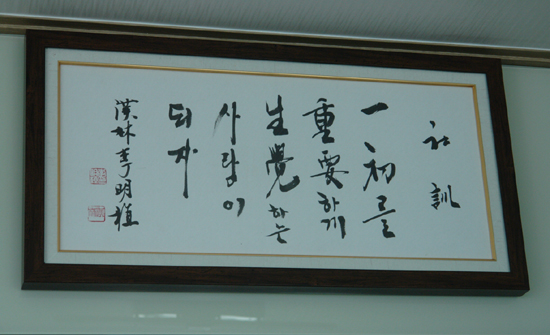 社訓
一初를
重要하게
生覺하는
사람이
되자
漢林 明